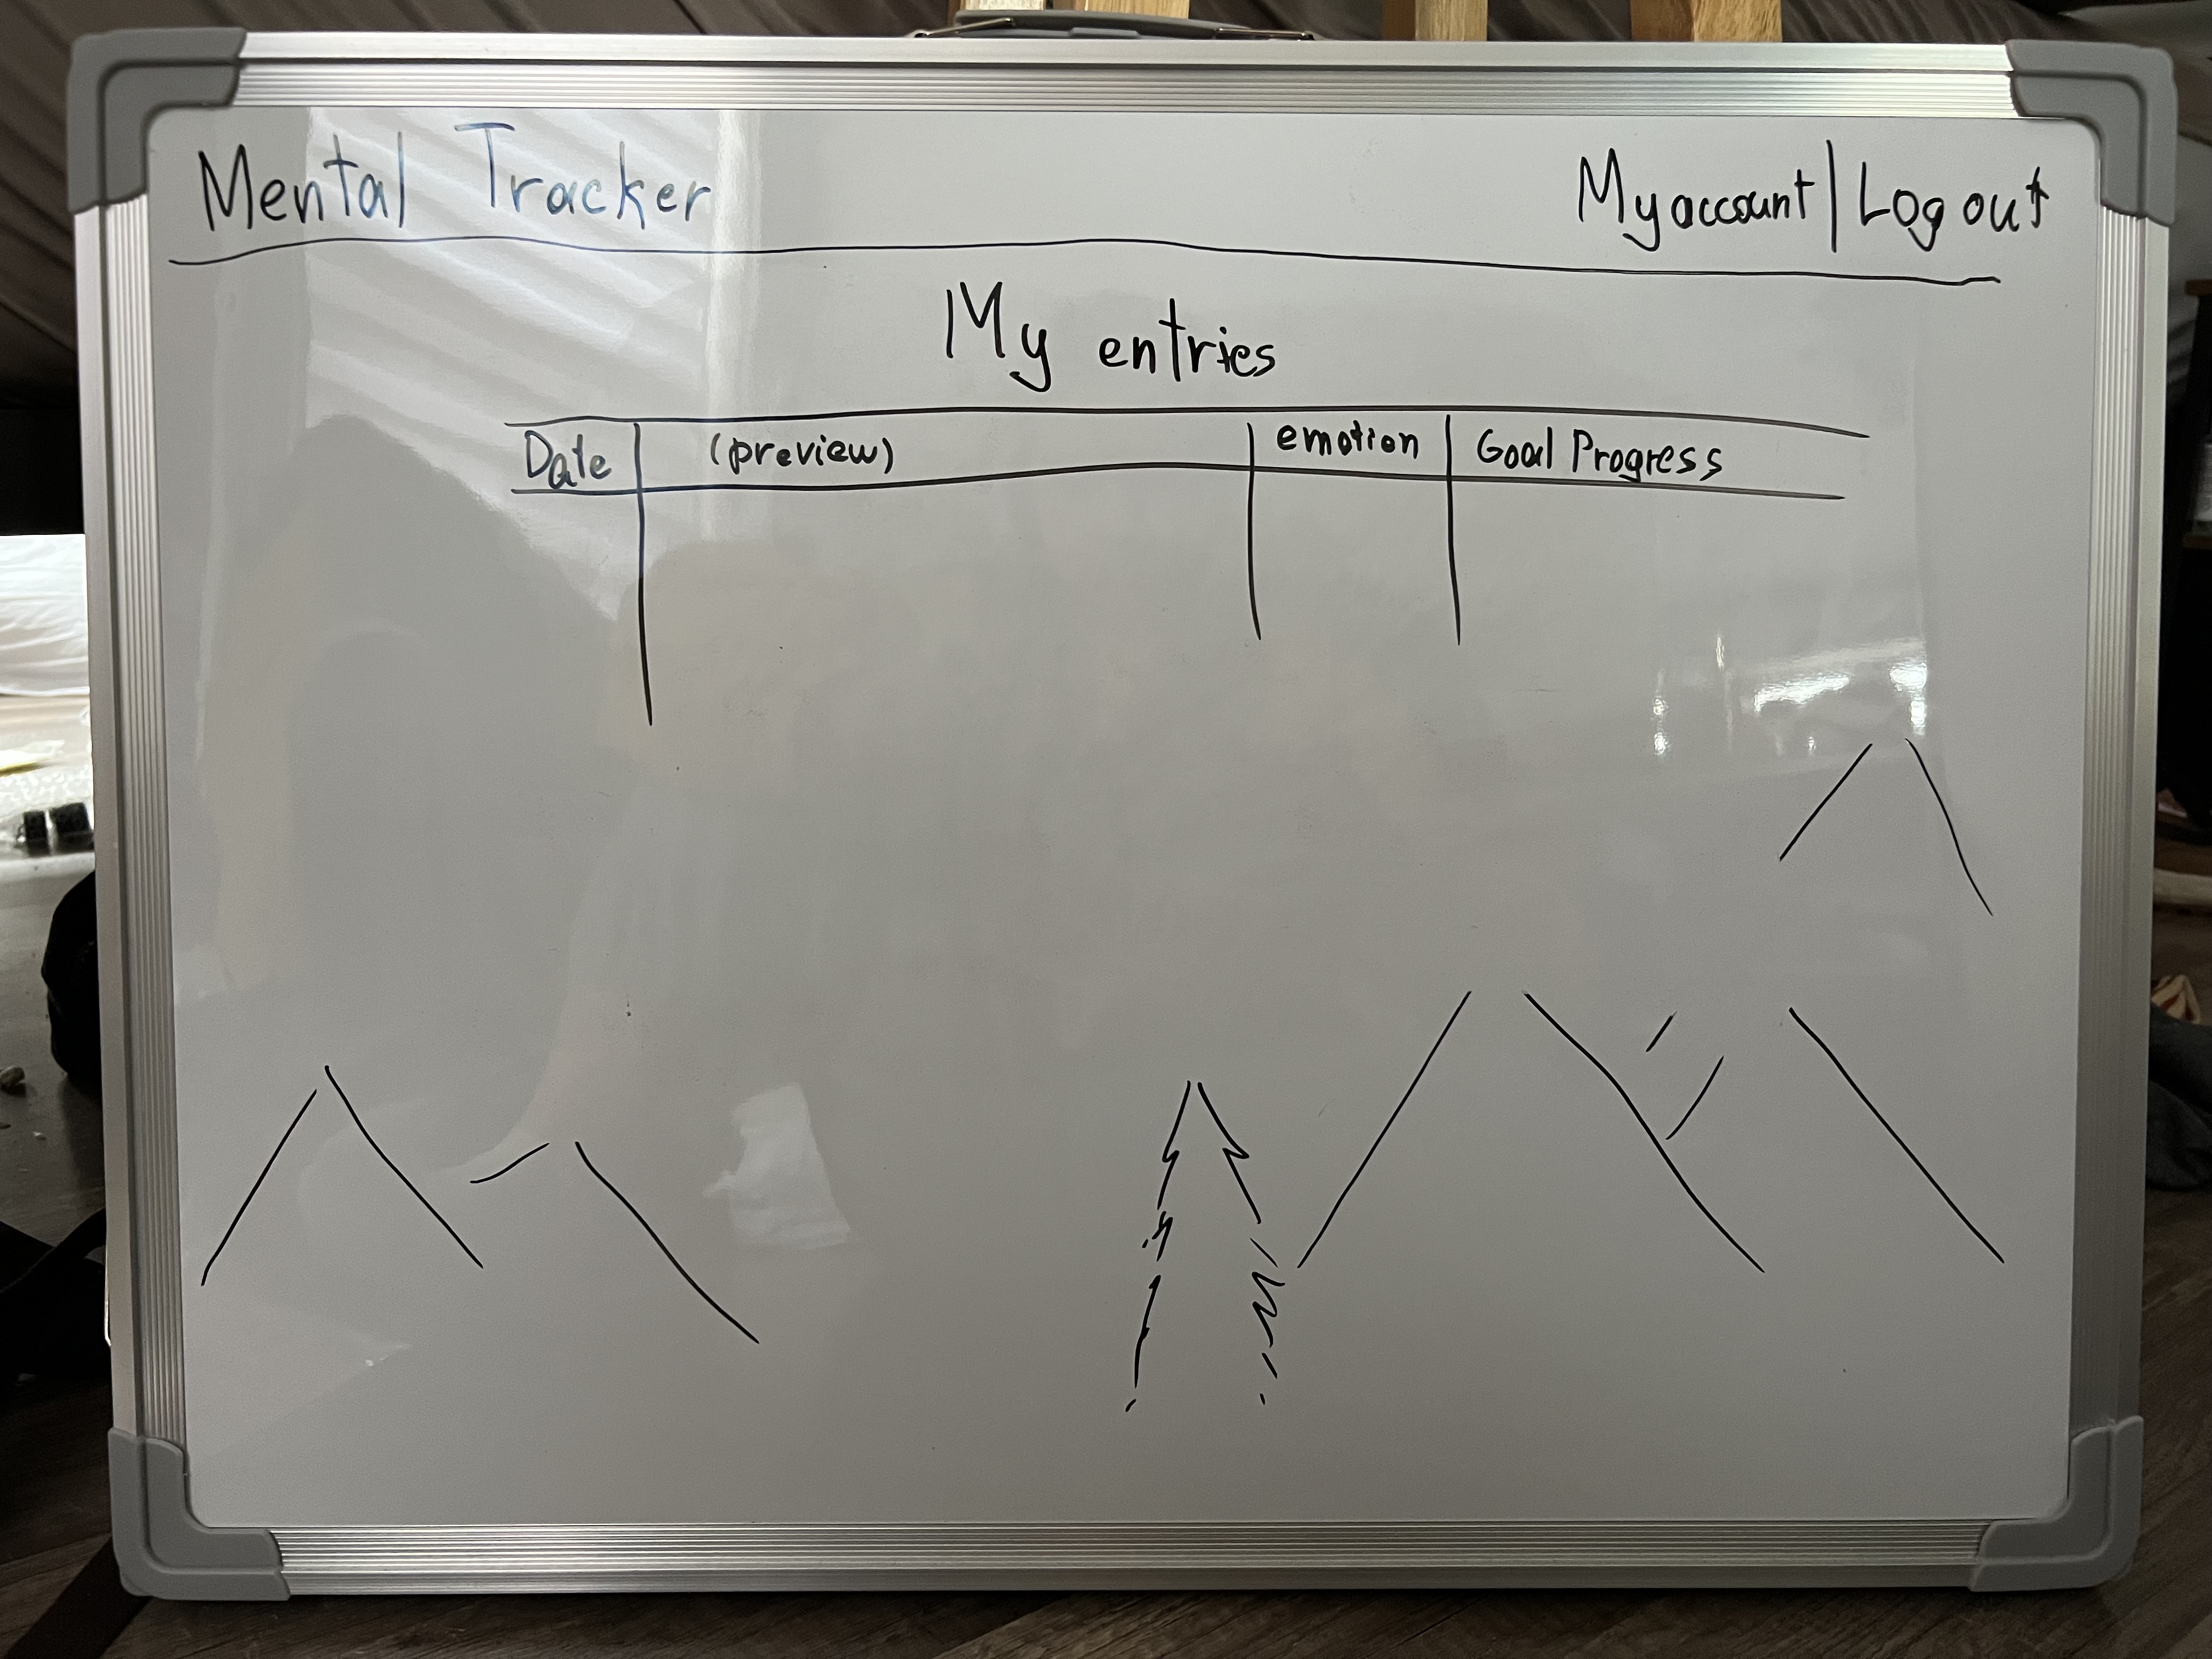 Mental Tracker My account | Log out
My entries
Date (preview) emotion Goal Progress